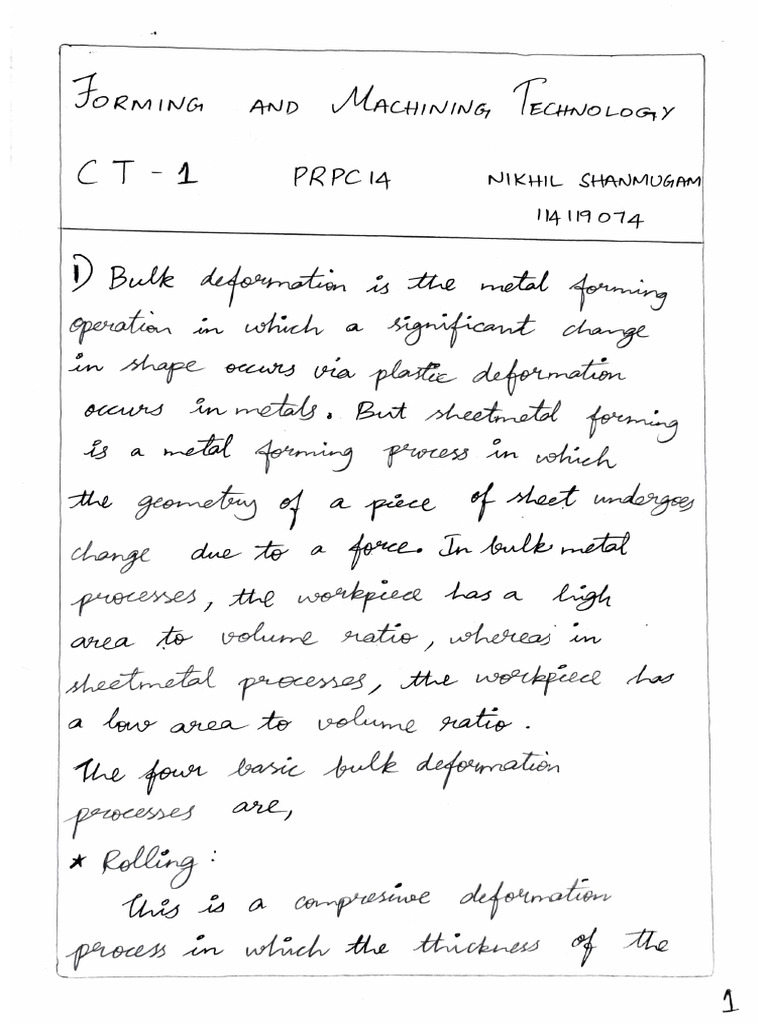 FORMING AND MACHINING TECHNOLOGY
CT - 1 PRPC14 NIKHIL SHANMUGAM
114119074
1) Bulk deformation is the metal forming
operation in which a significant change
in shape occurs via plastic deformation
occurs in metals. But sheetmetal forming
is a metal forming process in which
the geometry of a piece of sheet undergoes
change due to a force. In bulk metal
processes, the workpiece has a high
area to volume ratio, whereas in
sheetmetal processes, the workpiece has
a low area to volume ratio.
The four basic bulk deformation
processes are,
* Rolling:
This is a compresive deformation
process in which the thickness of the
1